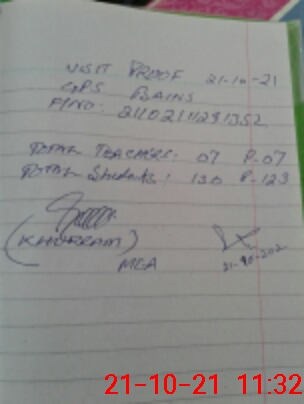 VISIT PROOF 21-10-21
GPS BAINS
TOTAL TEACHERS: 07 P-07
TOTAL Students: 130 P-123
(KHURRAM)
MEA
21-10-202
21-10-21 11:32